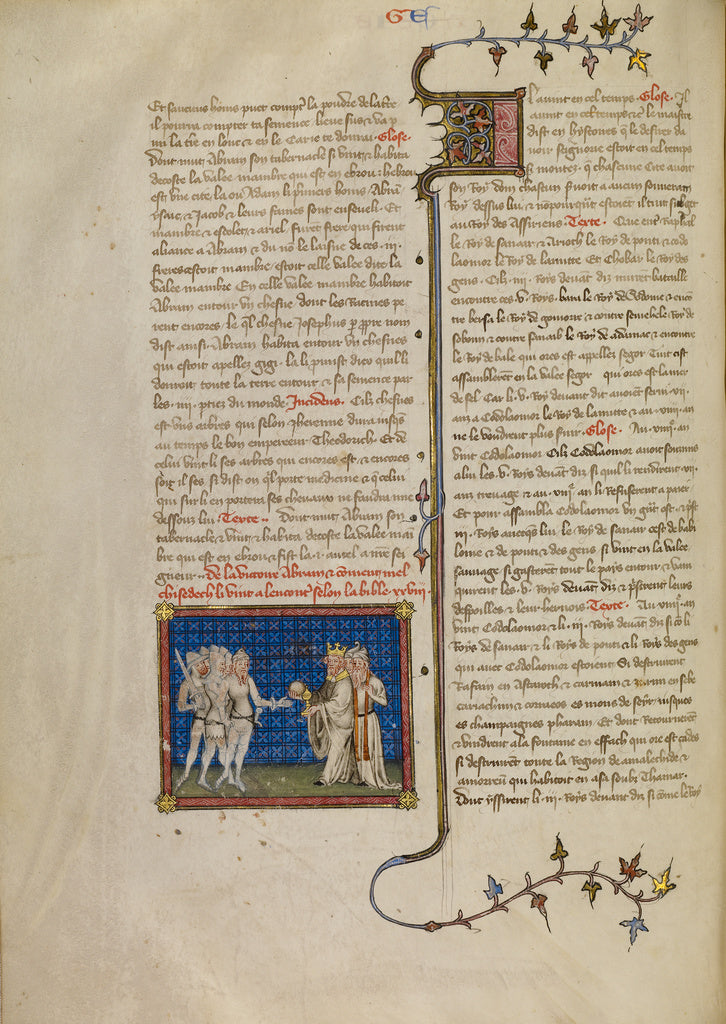 G E
Et saucuns homs puet compter la poudre de la tre
il pourra compter ta semence lieve sus & va p
mi la tre en louc & en le Car ie te donrai Glose
Dont mut Abram son tabernacle si vint & habita
decoste la valee mambre qui est en ebron
est une cite la ou Adam li premiers homs Abram
ysaac & Jacob & leurs femes sont enseveli Et
mambre & escol & furent frere qui firent
aliance a Abram & du nom le laisne de ces iii
freres estoit mambre estoit celle valee dite la
valee mambre En celle valee mambre habitoit
Abram entour un chesne dont les Racines pe
rent encores le ql chesne Josephus p ppre nom
dist ainsi Abram habita entour un chesnes
qui estoit apellez gigi la li promist dieu quil li
donroit toute la terre entour & sa semence par
les iiii pties du monde Incidens Cilz chesnes
est uns arbres qui selon Jheronme dura jusqs
au temps le bon empereeur Theodorich Et de
celui vint li ses arbres qui encores est & encores
soit il ses si dist on ql porte medicine & q celui
qui sur li en portera ses chevaux ne faudra mie
dessouz lui Texte Dont mut Abram son
tabernacle & vint & habita decoste la valee mam
bre qui est en ebron & fist la i autel a nre sei
gneur De la victoire Abram & coment mel
chisedech li vint a lencontre selon la bible xxviii
avint en cel temps Glose Il
avint en cel temps & le maistre
dist en hystoires q le desirer da
voir seignorie estoit en cel temps
si montez q chascune Cite avoit
son Roy dont chascun servoit a aucun souverain
Roy dessus lui & nonpourquant estoient il tuit subget
au Roy des Assiriens Texte Que en Raphal
le Roy de sanaar & Arioch le Roy de ponti & codo
laomor le Roy de lamite Et Thobar le Roy des
gens Cilz iiii Roys devant diz murent bataille
encontre ces v Roys bara le Roy de Sodome & encon
tre bersa le Roy de gomorre & contre semebele Roy de
sebom & contre sanaab le Roy de adamac & encontre
le Roy de bale qui ores est appellez segor Tuit cist
assamblerent en la valee segor qui ores est la mer
de sel Car li v Roys devant dit avoient servi vii
anz a Codolaomor le Roy de lamite & au viii an
ne le voudrent plus servir Glose Au viii an
vint Codolaomor Cilz Codolaomor avoit sormonte
a lui les v Roys devant diz si quil li rendirent vii
anz treuage & au viii an li Refuserent a paier
Et pour ce assambla Codolaomor un grant ost & prist
iii Roys avecqs lui le Roy de sanaar cest de babi
loine & de ponti & des gens si vint en la valee
sauvage si gasterent tout le pays entour & vain
quirent les v Roys devant diz & pristrent leurs
despoilles & leur hernois Texte Au viii an
vint Codolaomor & li iii Roys devant diz si come li
Roys de sanaar & li Roys de ponti & li Roys des gens
qui avec Codolaomor estoient Si destruirent
Rafaim en Astaroth & carnaim & zuzim en sebe
cariachim & correos es mons de seyr jusques
es champaignes pharam Et dont Retournerent
& vindrent a la fontaine en effach qui ore est cades
si destruirent toute la Region de amalechide &
amorreum qui habitoit en asa soubz Thamar
Dont yssirent li iii Roys devant diz si come le Roy